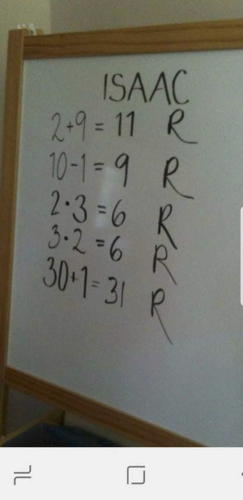 ISAAC
2+9 = 11 R
10-1 = 9 R
2·3 = 6 R
3·2 = 6 R
30+1 = 31 R